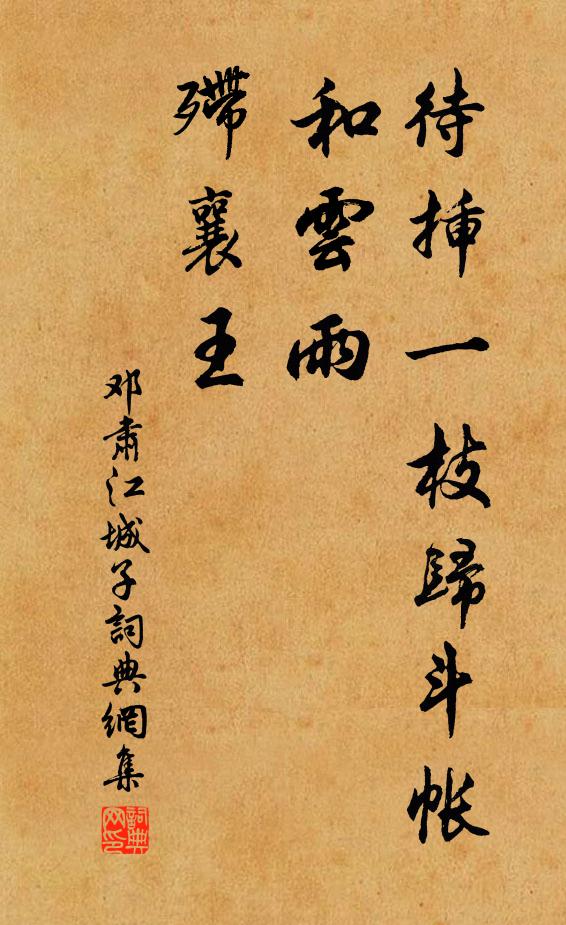 待插一枝歸斗帳
和雲雨
殢襄王
邓肅江城子詞典網集
詞典网印